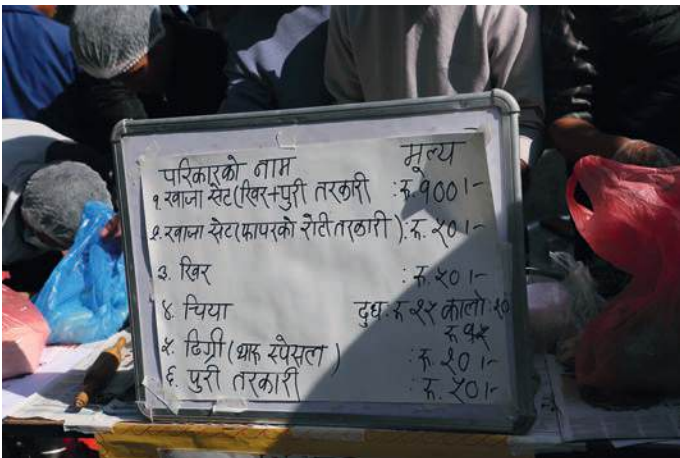 परिकारको नाम मूल्य
१ खाजा सेट (खिर+पुरी तरकारी : रू. १००।-
२. खाजा सेट (फापरको रोटी तरकारी ) : रू. ५०।-
३. खिर : रू. ५०।-
४. चिया दुधः रू २५ कालोः १०
रू १५
५. ढिग्री (थारू स्पेसल ) : रू. १०।-
६. पुरी तरकारी : रू. ५०।-